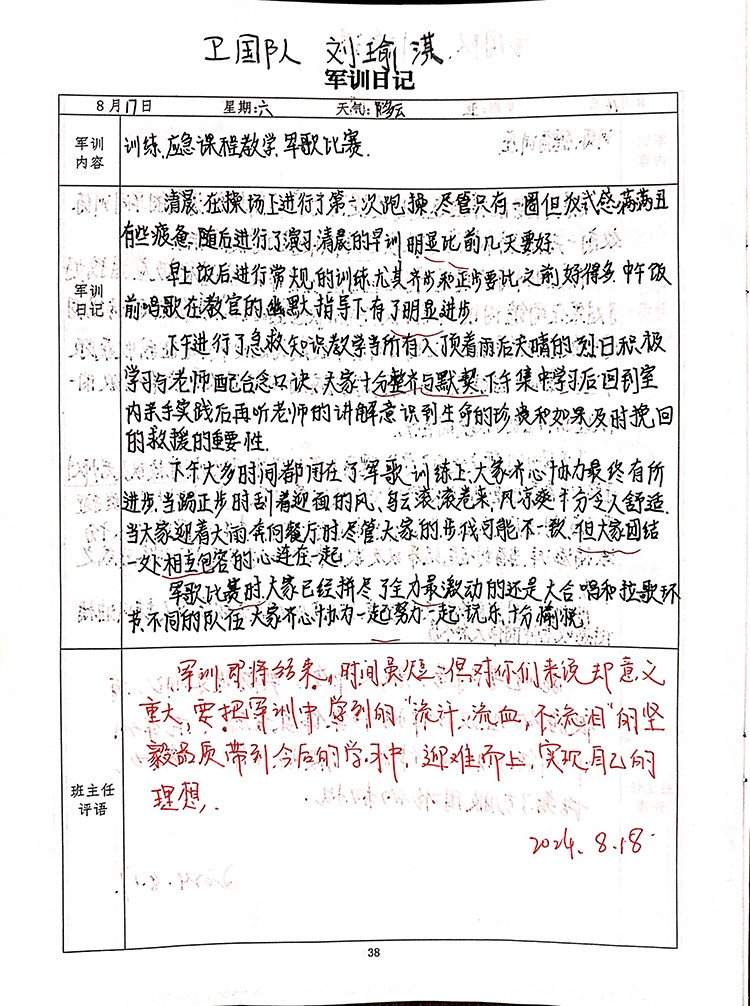 卫国队 刘瑜淇
军训日记
8月17日 星期:六 天气:多云
军训
内容
训练,应急课程教学,军歌比赛.
军训
日记
清晨,在操场上进行了第六次跑操,尽管只有一圈但仪式感满满且
有些疲惫,随后进行了演习.清晨的早训明显比前几天要好.
早上饭后进行常规的训练,尤其齐步和正步要比之前好得多.中午饭
前唱歌在教官的幽默指导下有了明显进步.
下午进行了急救知识教学,当所有人顶着雨后天晴的烈日积极
学习与老师配合念口诀,大家十分整齐与默契.下午集中学习后回到室
内亲手实践后再听老师的讲解意识到生命的珍贵和如果及时挽回
的救援的重要性.
下午大多时间都用在了军歌训练上,大家齐心协力最终有所
进步.当踢正步时刮着迎面的风,乌云滚滚卷来,风凉爽十分令人舒适.
当大家迎着大雨奔向餐厅时,尽管大家的步伐可能不一致,但大家团结
一处相互包容的心连在一起.
军歌比赛时,大家已经拼尽了全力最激动的还是大合唱和拉歌环
节,不同的队伍大家齐心协力一起努力一起玩乐,十分愉悦.
班主任
评语
军训即将结束,时间虽短,但对你们来说却意义
重大,要把军训中学到的“流汗、流血,不流泪”的坚
毅品质带到今后的学习中,迎难而上,实现自己的
理想.
2024.8.18.
38